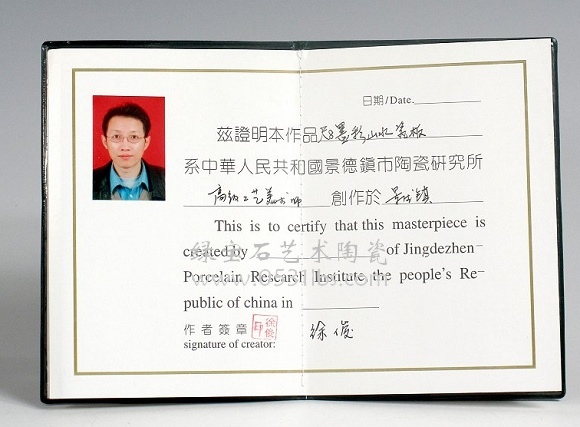 日期/Date.
茲證明本作品 墨彩山水瓷板
系中華人民共和國景德鎮市陶瓷研究所
高级工艺美术师 創作於 景德镇
This is to certify that this masterpiece is
created by of Jingdezhen-
Porcelain Research Institute the people's Re-
public of china in
绿宝石艺术陶瓷
作者簽章
徐俊印
徐俊
signature of creator: